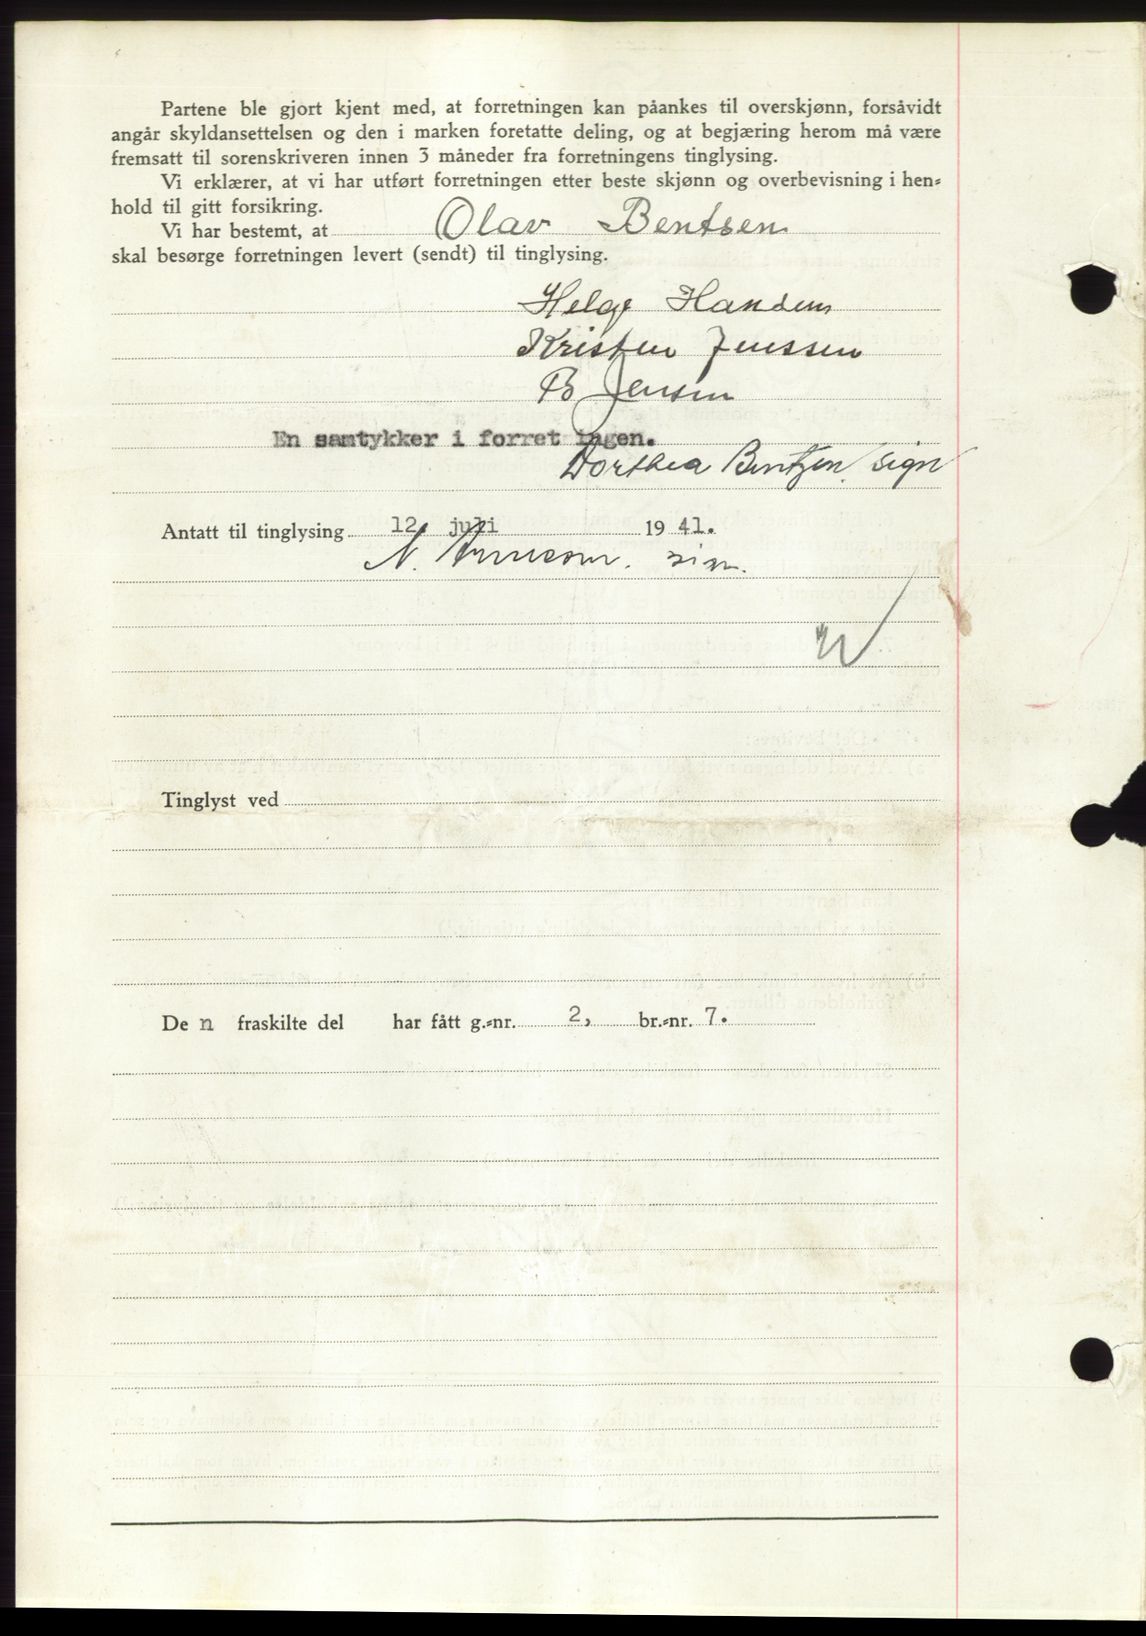 Partene ble gjort kjent med, at forretningen kan påankes til overskjønn, forsåvidt
angår skyldansettelsen og den i marken foretatte deling, og at begjæring herom må være
fremsatt til sorenskriveren innen 3 måneder fra forretningens tinglysing.
Vi erklærer, at vi har utført forretningen etter beste skjønn og overbevisning i hen-
hold til gitt forsikring.
Vi har bestemt, at Olav Bentsen
skal besørge forretningen levert (sendt) til tinglysing.
Helge Handem
Kristen Jenssen
B Jensen
En samtykker i forret ingen.
Dorthea Bentzen. sign
Antatt til tinglysing 12. juli 19 41.
N.
Tinglyst ved
De n fraskilte del har fått g.-nr. 2, br.-nr. 7.